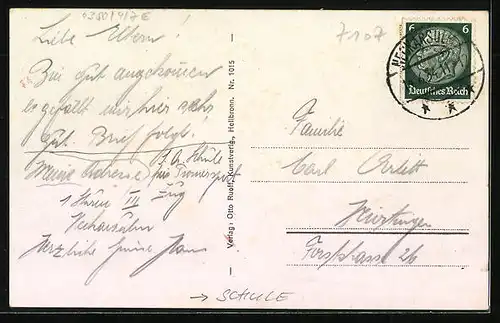 0380/4/7E
7107
Liebe Eltern!
Bin gut angekommen
es gefällt mir hier sehr
gut. Brief folgt!
Meine Adresse
Schule
1 III Zug
Neckarsulm
Herzliche Grüsse Hans
Verlag: Otto Rueff, Kunstverlag, Heilbronn. Nr. 1015
6 6
Deutsches Reich
Familie
Carl
Nürtingen
Forststrasse 26
→ SCHULE